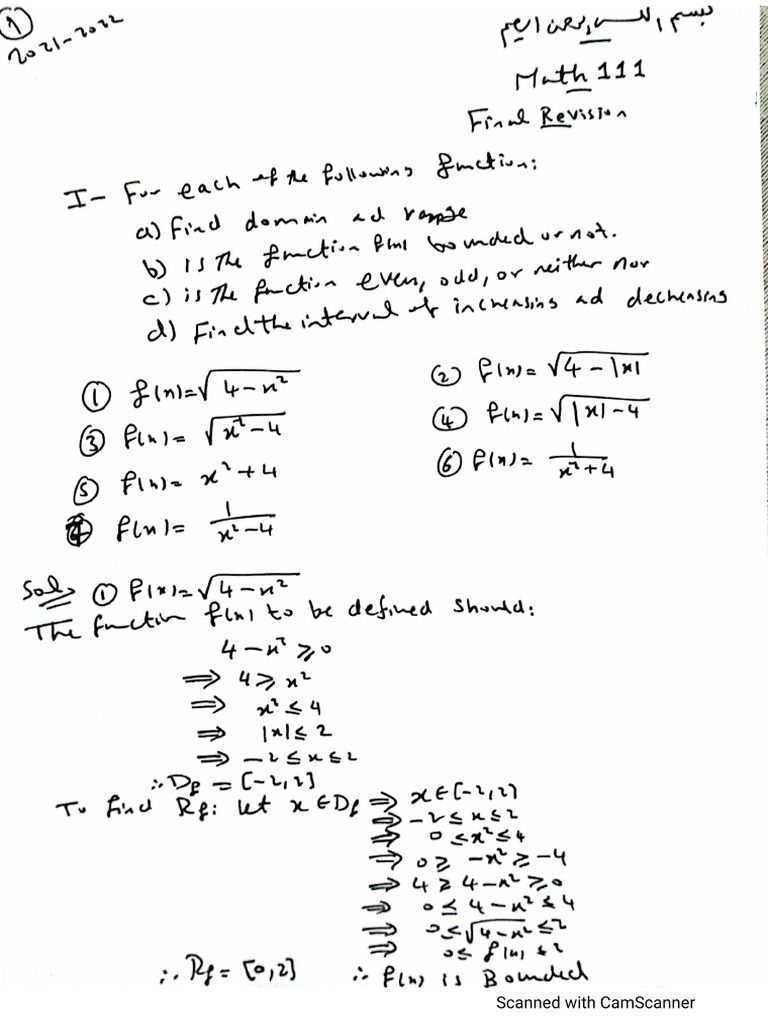 ①
2021-2022
بسم الله الرحمن الرحيم
Math 111
Final Revision
I- For each of the following function:
a) Find domain ad range
b) Is The function f(x) bounded or not.
c) is The function even, odd, or neither nor
d) Find the interval of increasing ad decreasing
① f(x)=√(4-x²)
② f(x)=√(4-|x|)
③ f(x)=√(x²-4)
④ f(x)=√(|x|-4)
⑤ f(x)= x²+4
⑥ f(x)= 1/(x²+4)
⑦ f(x)= 1/(x²-4)
Sol ① f(x)=√(4-x²)
The function f(x) to be defined should:
4-x² ≥ 0
⇒ 4 ≥ x²
⇒ x² ≤ 4
⇒ |x| ≤ 2
⇒ -2 ≤ x ≤ 2
∴ D_f = [-2,2]
To find R_f: let x ∈ D_f ⇒ x ∈ [-2,2]
⇒ -2 ≤ x ≤ 2
⇒ 0 ≤ x² ≤ 4
⇒ 0 ≥ -x² ≥ -4
⇒ 4 ≥ 4-x² ≥ 0
⇒ 0 ≤ 4-x² ≤ 4
⇒ 0 ≤ √(4-x²) ≤ 2
⇒ 0 ≤ f(x) ≤ 2
∴ R_f = [0,2] ∴ f(x) is Bounded
Scanned with CamScanner